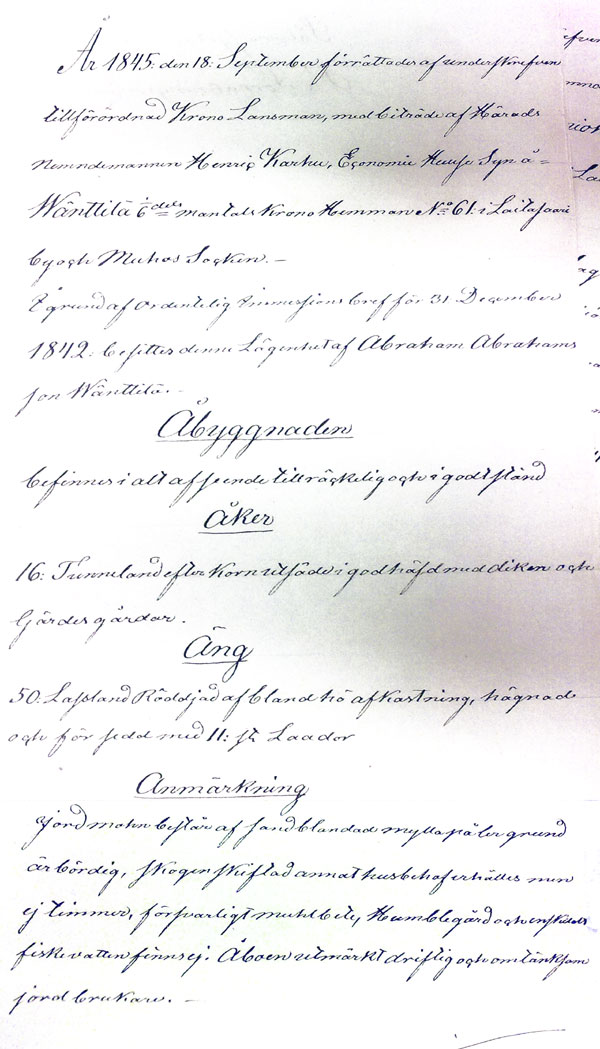 År 1845: den 18: September förrättades af underskrefven
tillförordnad Krono Länsman, med biträde af Härads
Nemndemannen Henric Karhu, Economie Huuse Syn å
Wänttilä 1/6 dels mantals Krono Hemman No 61: i Laitasaari
by och Muhos Socken. —
I grund af ordentelig Immissions bref för 31 December
1842: besittes denne Lägenhet af Abraham Abrahams
son Wänttilä. —
Åbyggnaden
befinnes i alt afseende tillräckelig och i godt stånd
Åker
16: Tunneland efter Korn utsäde i god häfd med diken och
Gärdes gårdar.
Äng
50: Lassland Röddjad af bland hö afkastning, hägnad
och för sedd med 11: st Laador
Anmärkning
Jord mohn består af sand blandad mylla på ler grund
är bördig, skogen skiftad annat husbehof erhålles men
ej timmer, försvarligt muhlbete, Humblegård och enskildt
fiske vatten finns ej. Åboen utmärkt driftig och omtänksam
jord brukare. —